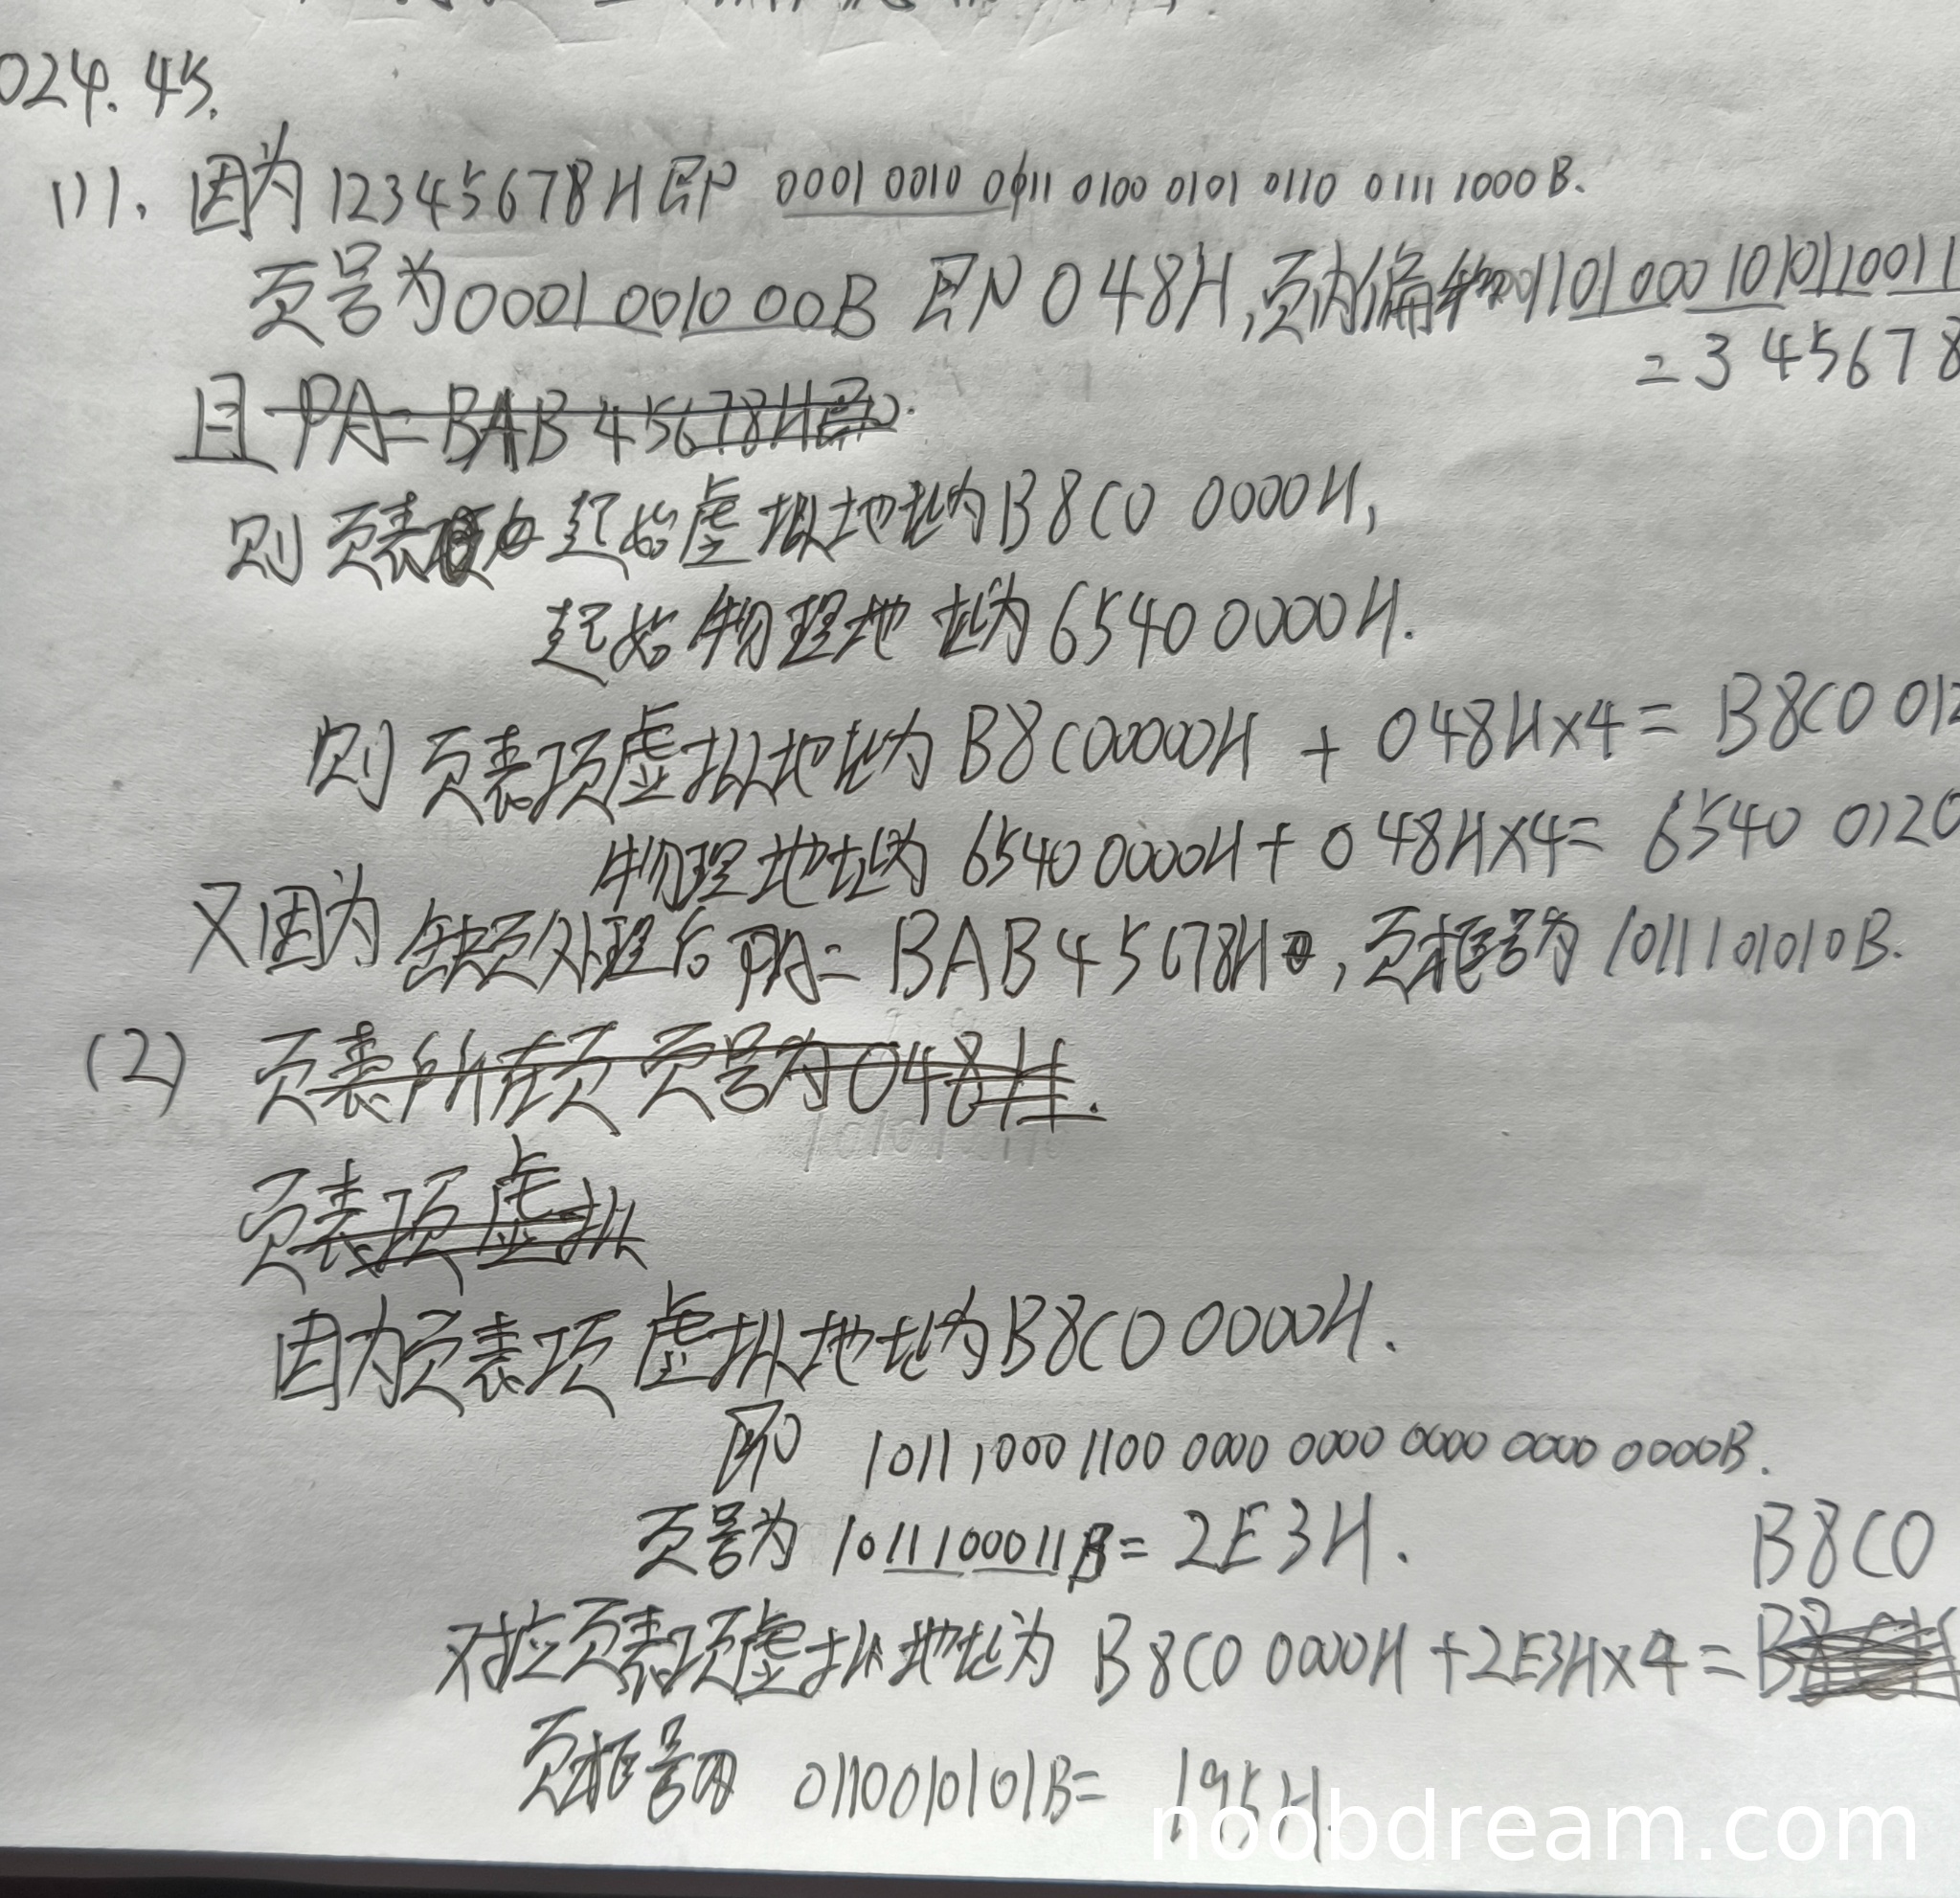 024.45.
(1). 因为12345678H即 0001 0010 0011 0100 0101 0110 0111 1000B.
页号为0001001000B 即048H,页内偏移 1101000101011 0011
=345678
且 PA=BAB45678H即
则 页表 起始虚拟地址为B8C0 0000H,
起始物理地址为65400000H.
则页表项虚拟地址为B8C00000H + 048H×4= B8C0 012
物理地址为 65400000H+048H×4= 6540 0120
又因为缺页处理后PA= BAB45678H,页框号为1011101010B.
(2) 页表所在页页号为048H.
页表项虚拟
因为页表项虚拟地址为B8C00000H.
即 1011 1000 1100 0000 0000 0000 0000 0000B.
页号为 1011100011B= 2E3H.
B8C0
对应页表项虚拟地址为 B8C0 0000H+2E3H×4=
页框号为 0110010101B= 195H.
noobdream.com